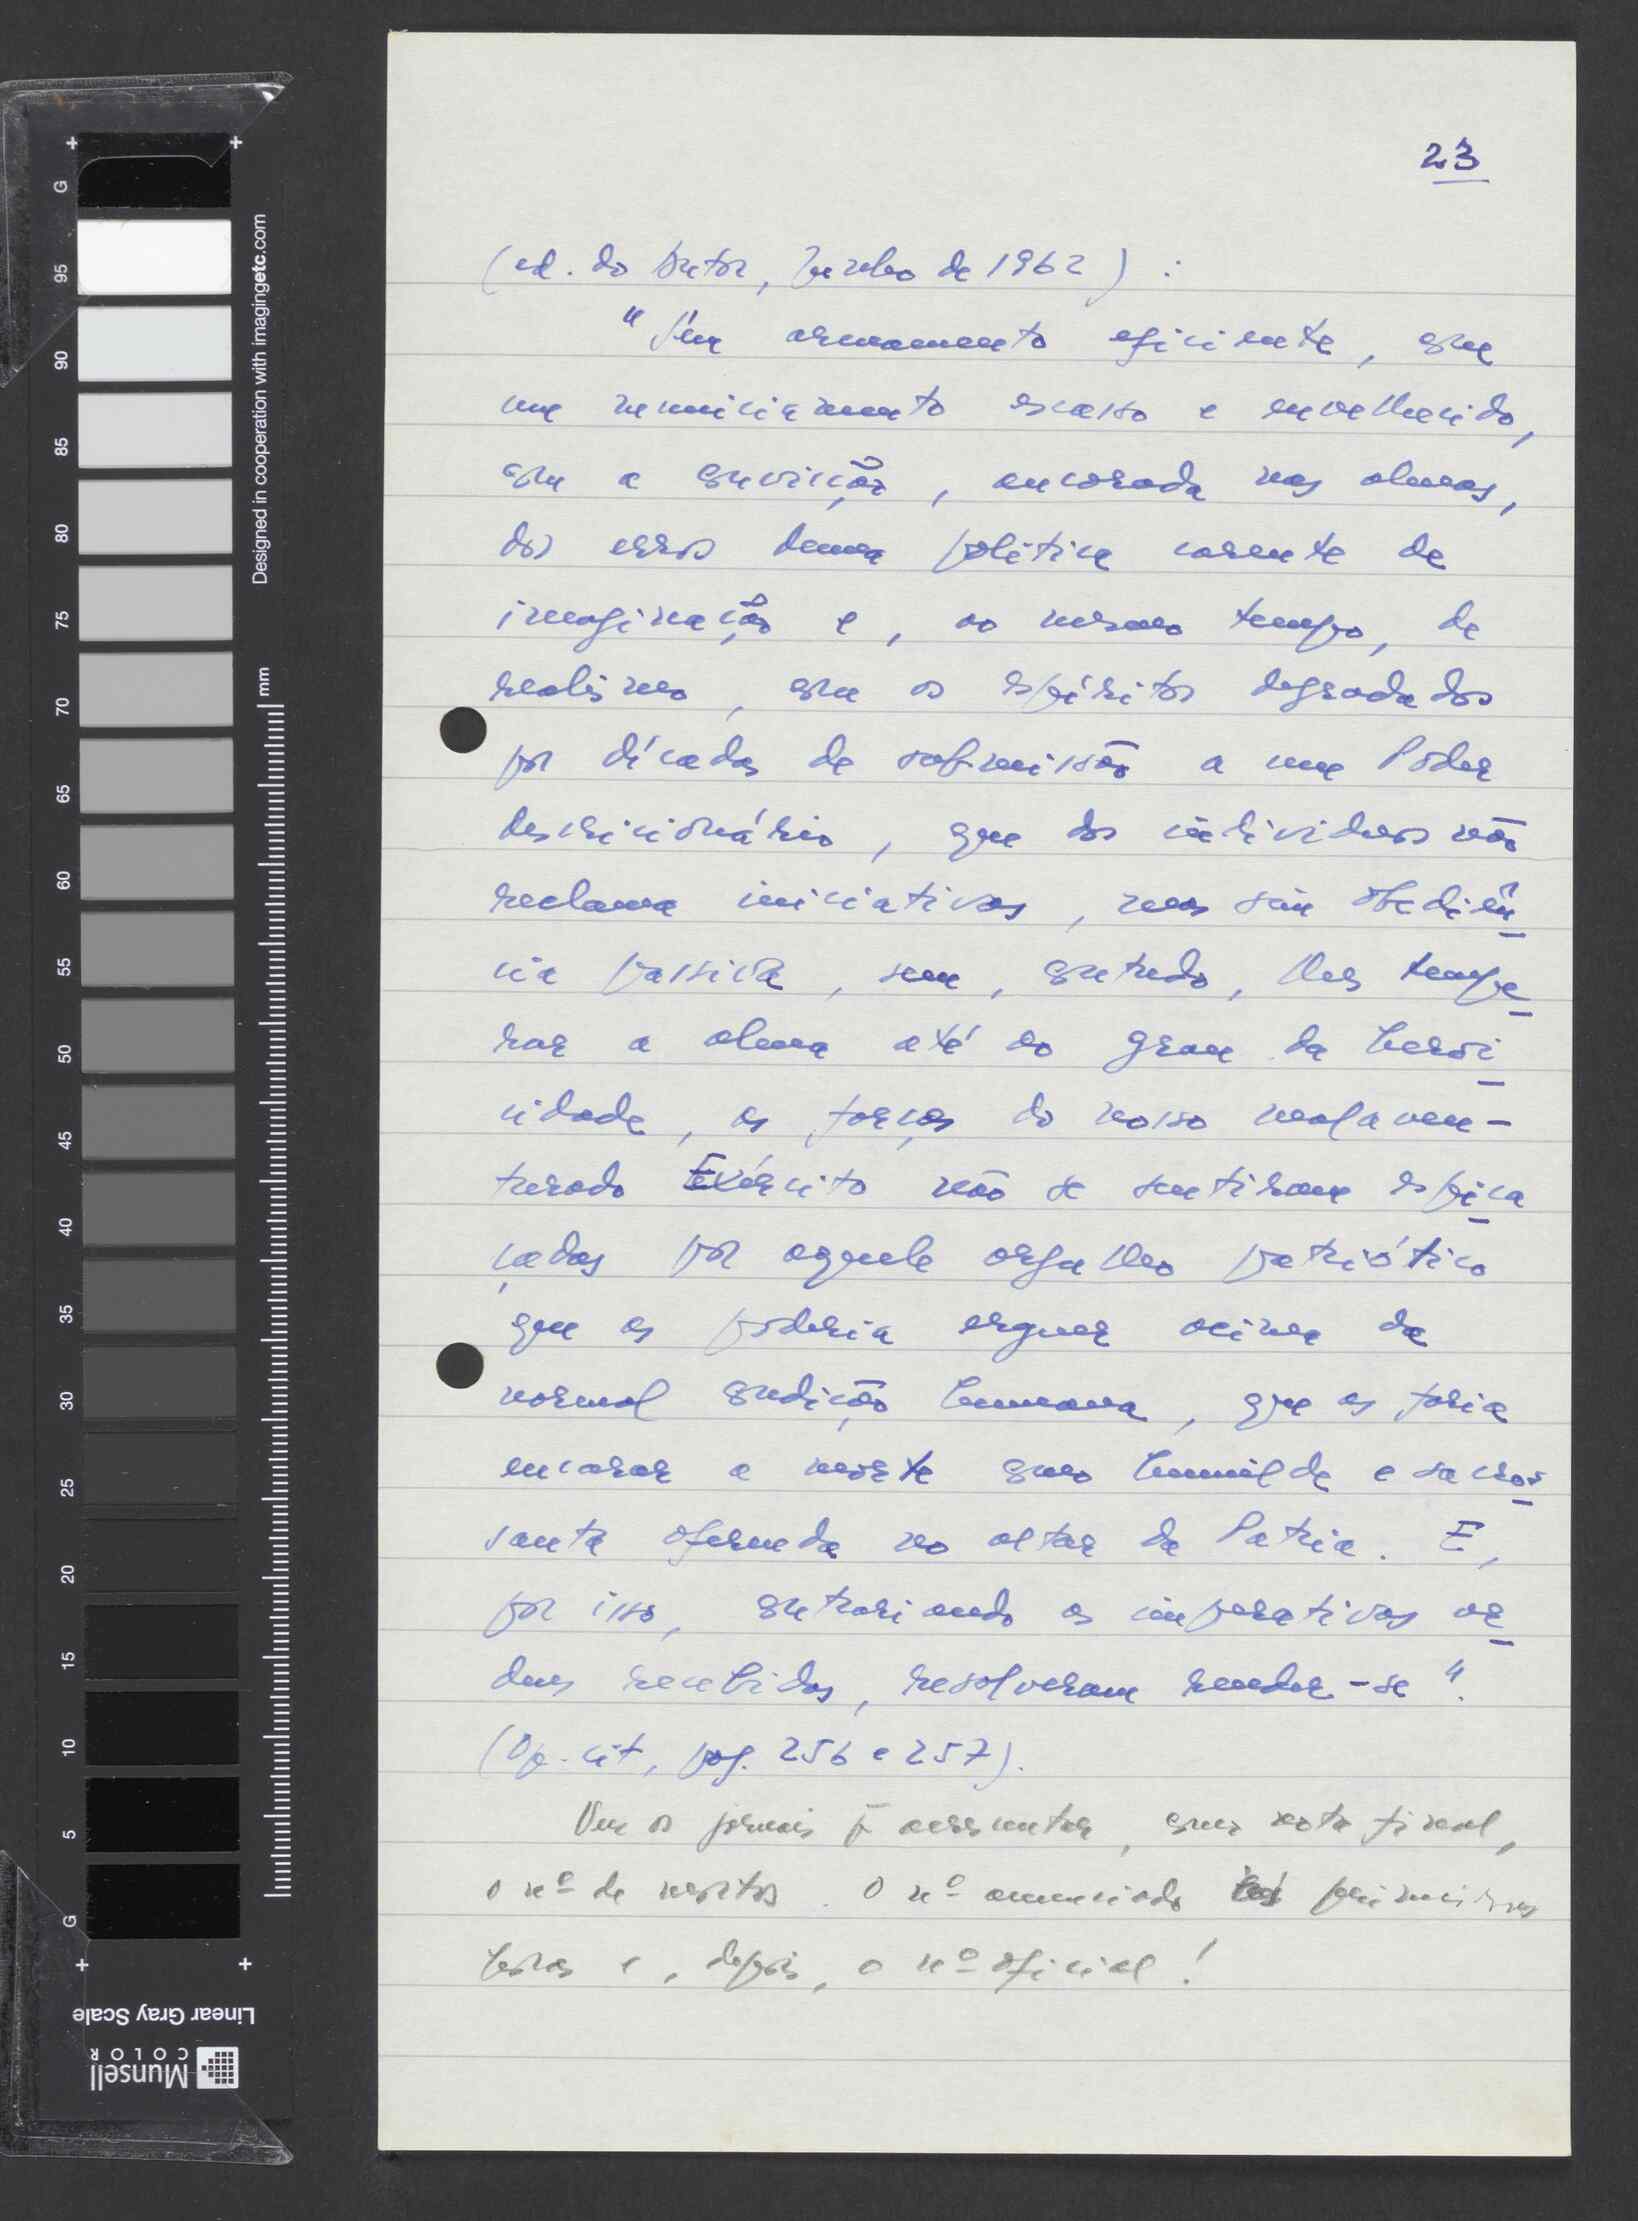 23
(ed. do Autor, Junho de 1962) :
"Sem armamento eficiente, com
um remuniciamento escasso e envelhecido,
com a convicção, ancorada nas almas,
dos erros duma política carente de
imaginação e, ao mesmo tempo, de
realismo, com os espíritos degradados
por décadas de submissão a um Poder
descricionário, que dos indivíduos não
reclama iniciativas, mas sim obediên
cia passiva, sem, contudo, lhes tempe
rar a alma até ao grau da heroi
cidade, as forças do nosso malaven-
turado Exército não se sentiram espica
çadas por aquele orgulho patriótico
que as poderia erguer acima da
normal condição humana, que as faria
encarar a morte como humilde e sacros
santa oferenda no altar da Patria. E,
por isso, contrariando os imperativos or
dens recebidas, resolveram render-se".
(Op. cit, pag. 256 e 257).
Ver os jornais p acrescentar, em nota final,
o nº de mortos. O nº anunciado nas primeiras
horas e, depois, o nº oficial!
Designed in cooperation with imagingetc.com
mm
G
95
90
85
80
75
70
65
60
55
50
45
40
35
30
25
20
15
10
5
G
Linear Gray Scale
Munsell
COLOR